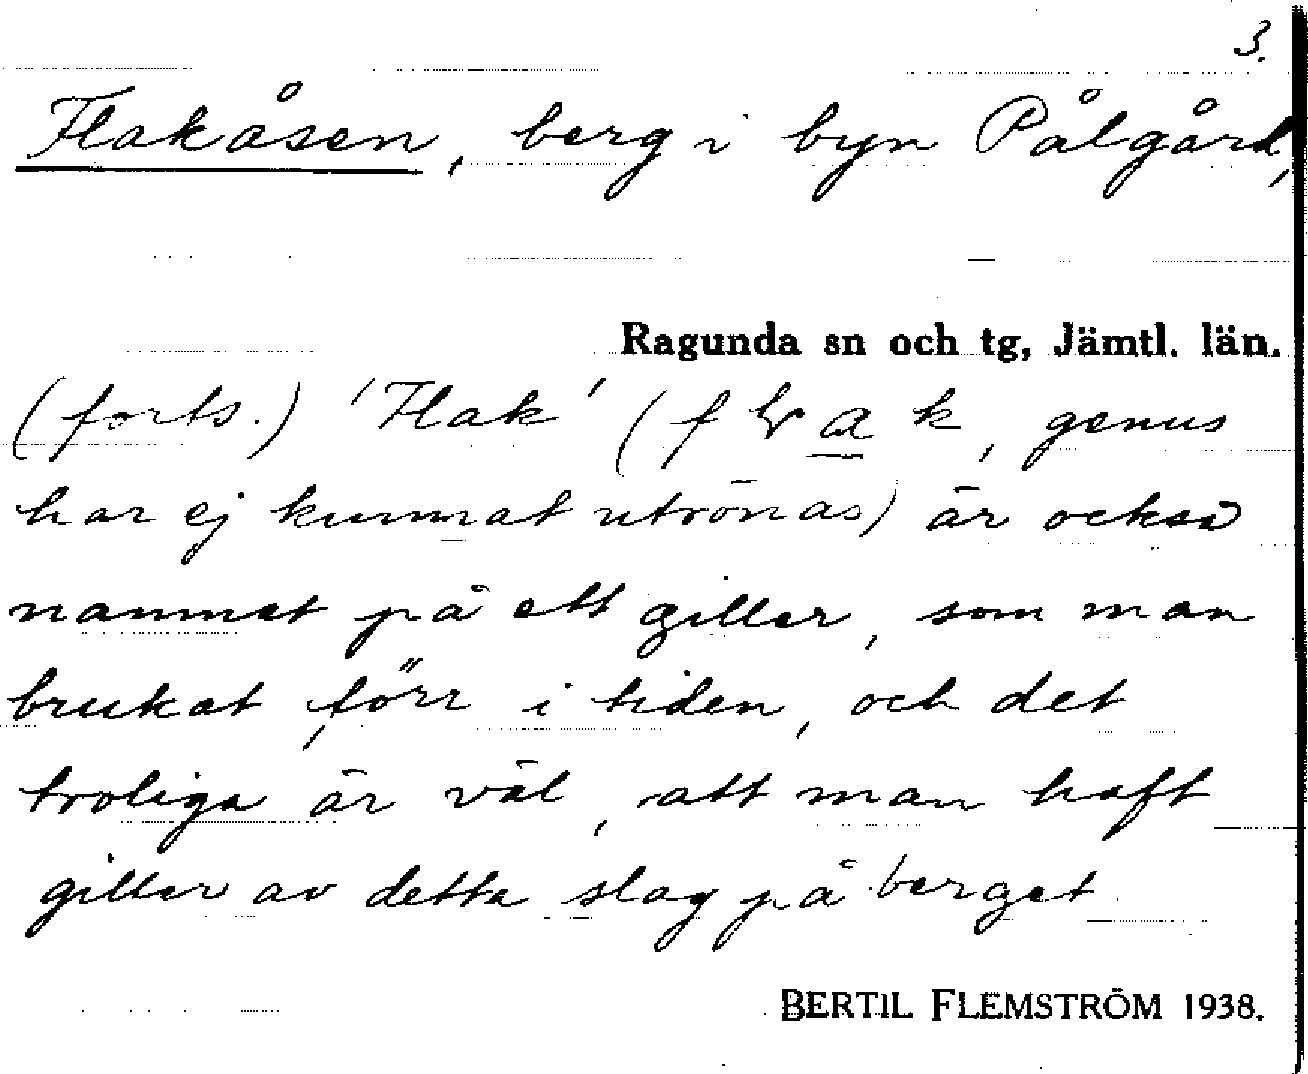 3.
Flakåsen, berg i byn Pålgård,
Ragunda sn och tg, Jämtl. län.
(forts.) 'Flak' (f a k, genus
har ej kunnat utrönas) är också
namnet på ett giller, som man
brukat förr i tiden, och det
troliga är väl, att man haft
giller av detta slag på berget
BERTIL FLEMSTRÖM 1938.